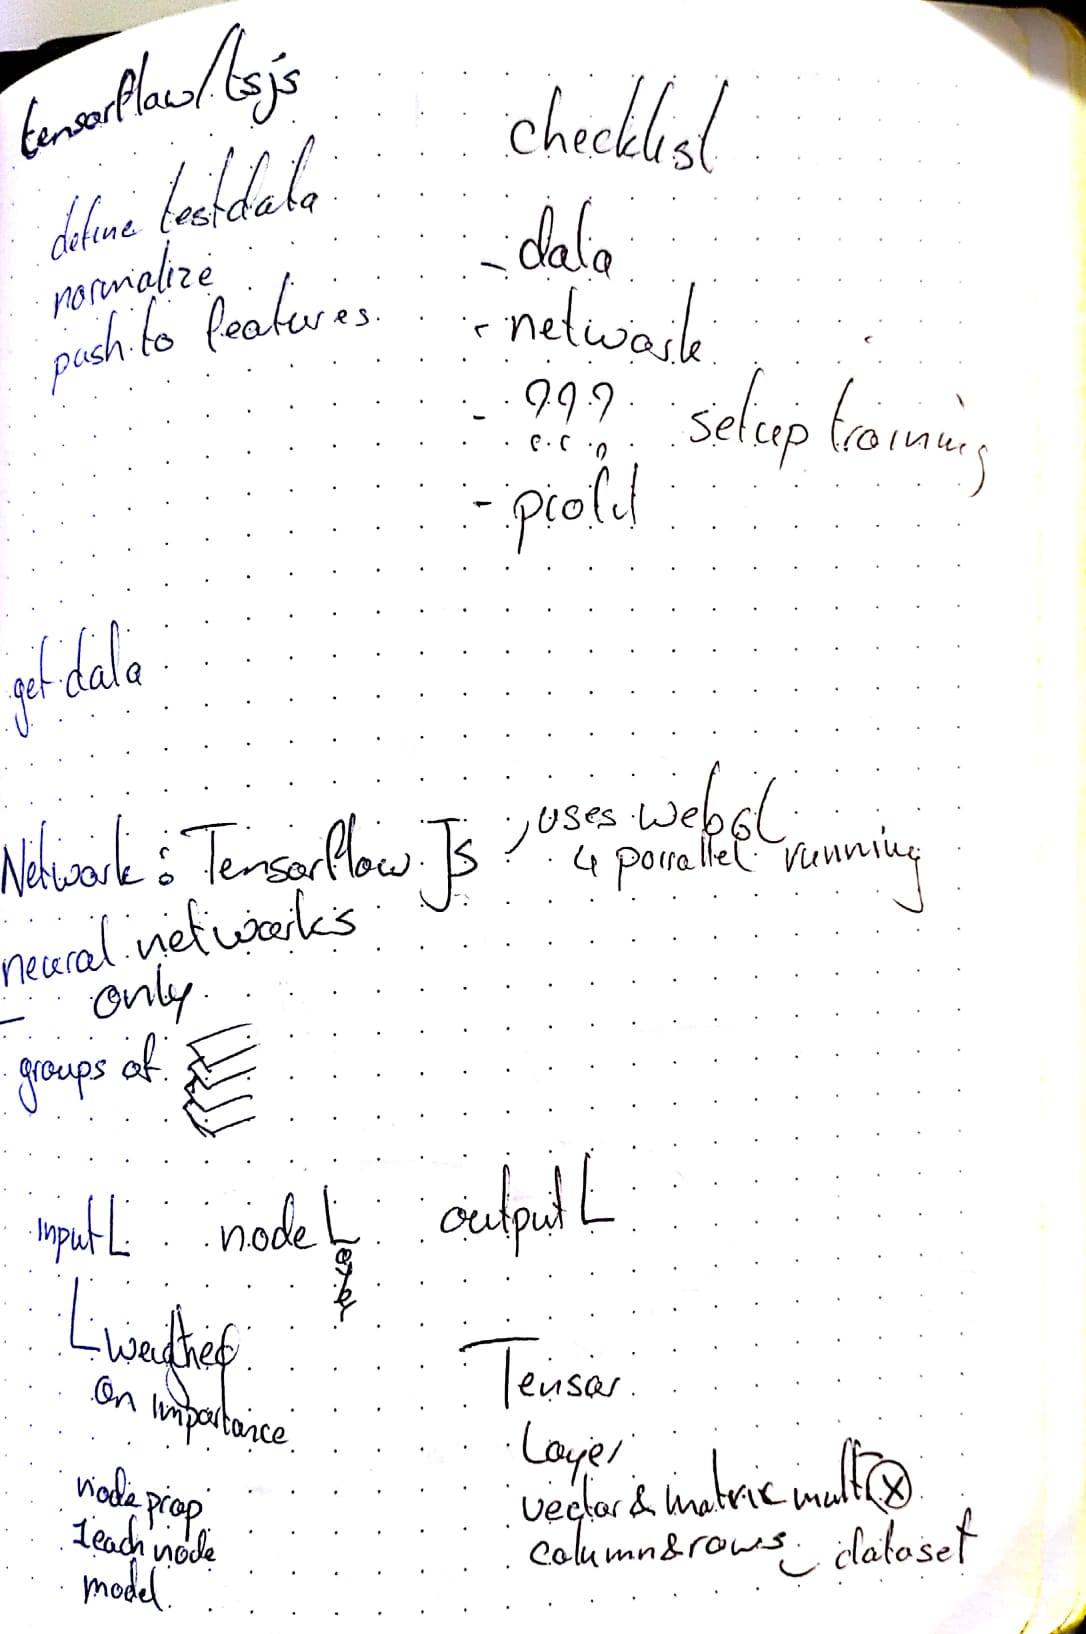 tensorflow/tsjs
define testdata
normalize
push to features
checklist
- data
- network
- ??? setup training
-
get data
Network: TensorFlow Js, uses webGL
4 parallel running
neural networks
only
groups of
input L node Layer output L
on importance
node prop
1 each node
model
Tensor
Layer
vector & matrix mult ⓧ
column & rows dataset